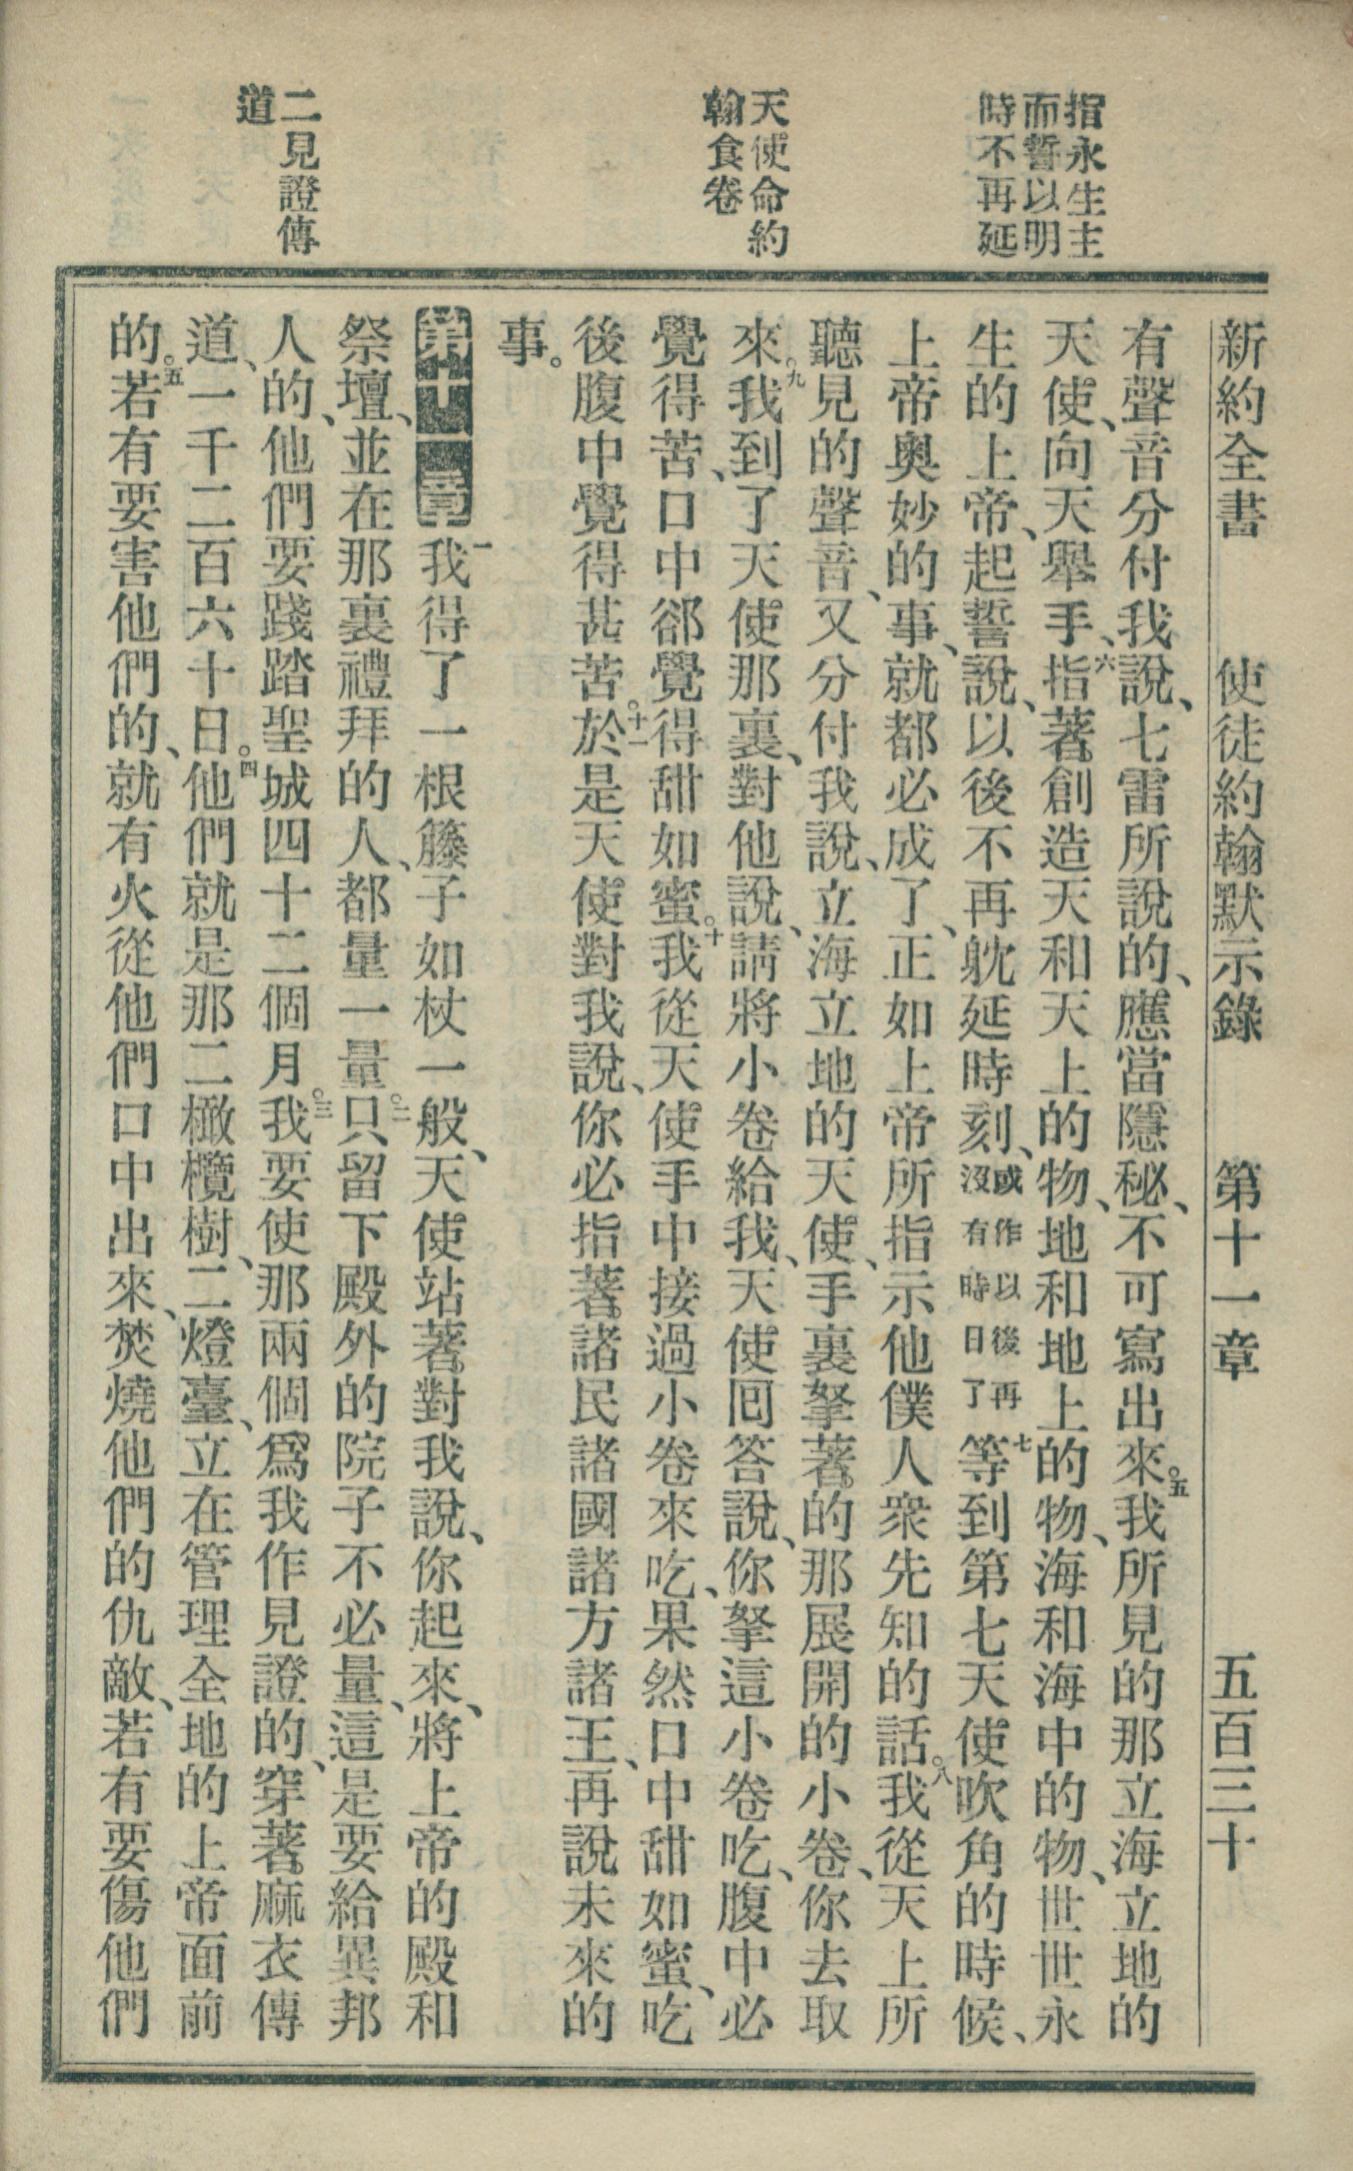 指永生主
而誓以明
時不再延
天使命約
翰食卷
二見證傳
道
新約全書 使徒約翰默示錄 第十一章 五百三十
有聲音分付我說、七雷所說的、應當隱秘、不可寫出來。五我所見的那立海立地的
天使、向天舉手、六指著創造天和天上的物、地和地上的物、海和海中的物、世世永
生的上帝、起誓說、以後不再躭延時刻、或作以後再沒有時日了七等到第七天使吹角的時候、
上帝奧妙的事、就都必成了、正如上帝所指示他僕人衆先知的話。八我從天上所
聽見的聲音、又分付我說、立海立地的天使、手裏拏著的那展開的小卷、你去取
來。九我到了天使那裏、對他說、請將小卷給我、天使囘答說、你拏這小卷吃、腹中必
覺得苦、口中郤覺得甜如蜜。十我從天使手中接過小卷來吃、果然口中甜如蜜、吃
後腹中覺得甚苦。十一於是天使對我說、你必指著諸民諸國諸方諸王、再說未來的
事。
第十一章 一我得了一根籐子如杖一般、天使站著對我說、你起來、將上帝的殿和
祭壇、並在那裏禮拜的人、都量一量。二只留下殿外的院子不必量、這是要給異邦
人的、他們要踐踏聖城四十二個月。三我要使那兩個爲我作見證的、穿著麻衣傳
道、一千二百六十日。四他們就是那二橄欖樹、二燈臺、立在管理全地的上帝面前
的。五若有要害他們的、就有火從他們口中出來、焚燒他們的仇敵、若有要傷他們